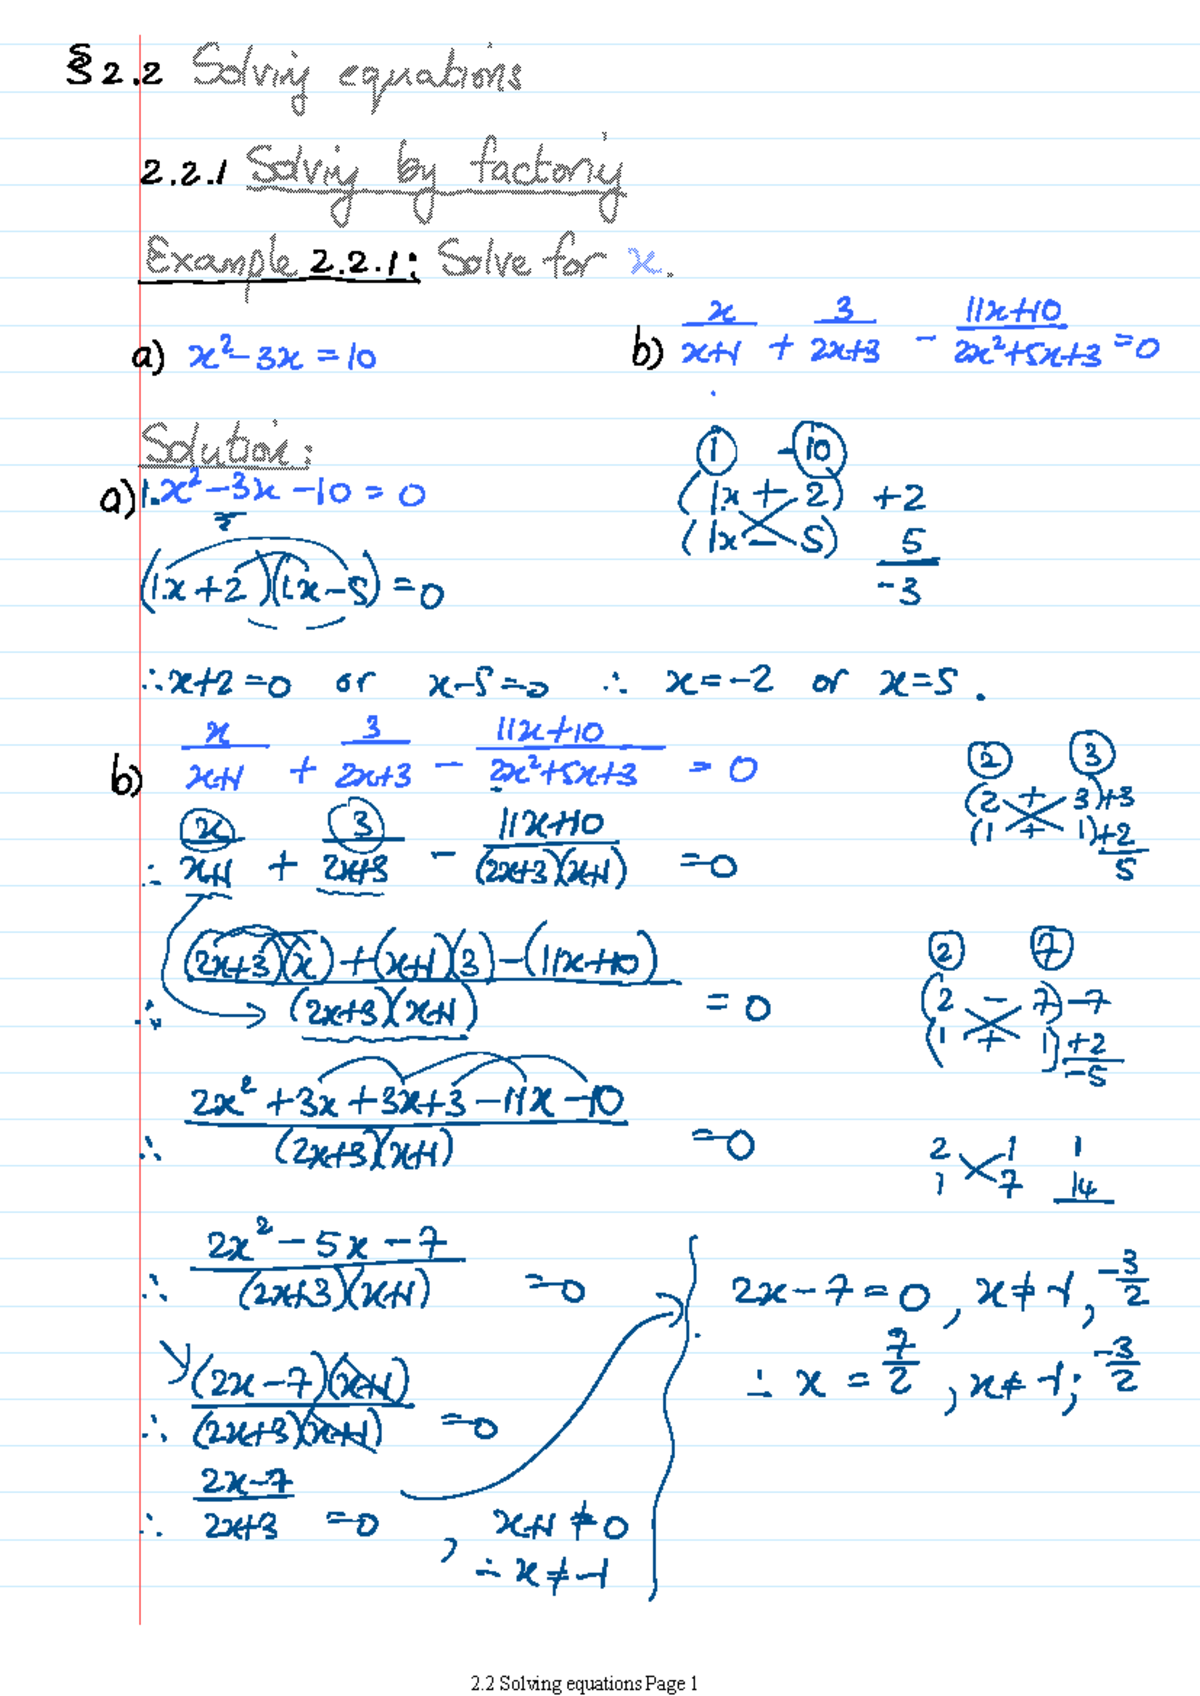 § 2.2 Solving equations
2.2.1 Solving by factoring
Example 2.2.1: Solve for x.
a) x² - 3x = 10
b) x/(x+1) + 3/(2x+3) - (11x+10)/(2x²+5x+3) = 0
Solution:
a) 1.x² - 3x - 10 = 0
(1.x + 2)(1.x - 5) = 0
1 -10
(1x + 2) +2
(1x - 5) 5
-3
∴ x+2 = 0 or x-5 = 0 ∴ x = -2 or x = 5.
b) x/(x+1) + 3/(2x+3) - (11x+10)/(2x²+5x+3) = 0
∴ x/(x+1) + 3/(2x+3) - (11x+10)/((2x+3)(x+1)) = 0
2 3
(2 + 3) +3
(1 + 1) +2
5
∴ ((2x+3)(x) + (x+1)(3) - (11x+10))/((2x+3)(x+1)) = 0
2 7
(2 - 7) -7
(1 + 1) +2
-5
∴ (2x² + 3x + 3x + 3 - 11x - 10)/((2x+3)(x+1)) = 0
2 1 1
1 7 14
∴ (2x² - 5x - 7)/((2x+3)(x+1)) = 0
∴ ((2x-7)(x+1))/((2x+3)(x+1)) = 0
∴ (2x-7)/(2x+3) = 0 , x+1 ≠ 0
∴ x ≠ -1
2x - 7 = 0 , x ≠ -1, -3/2
∴ x = 7/2 , x ≠ -1; -3/2
2.2 Solving equations Page 1